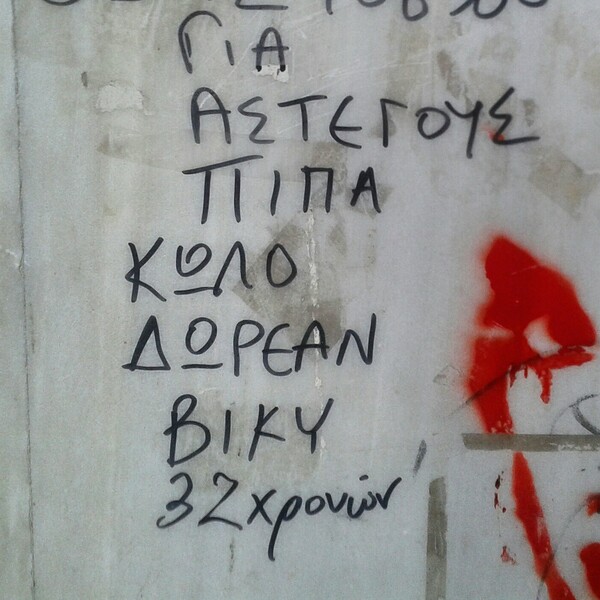 ΓΙΑ
ΑΣΤΕΓΟΥΣ
ΠΙΠΑ
ΚΩΛΟ
ΔΩΡΕΑΝ
ΒΙΚΥ
32χρονών